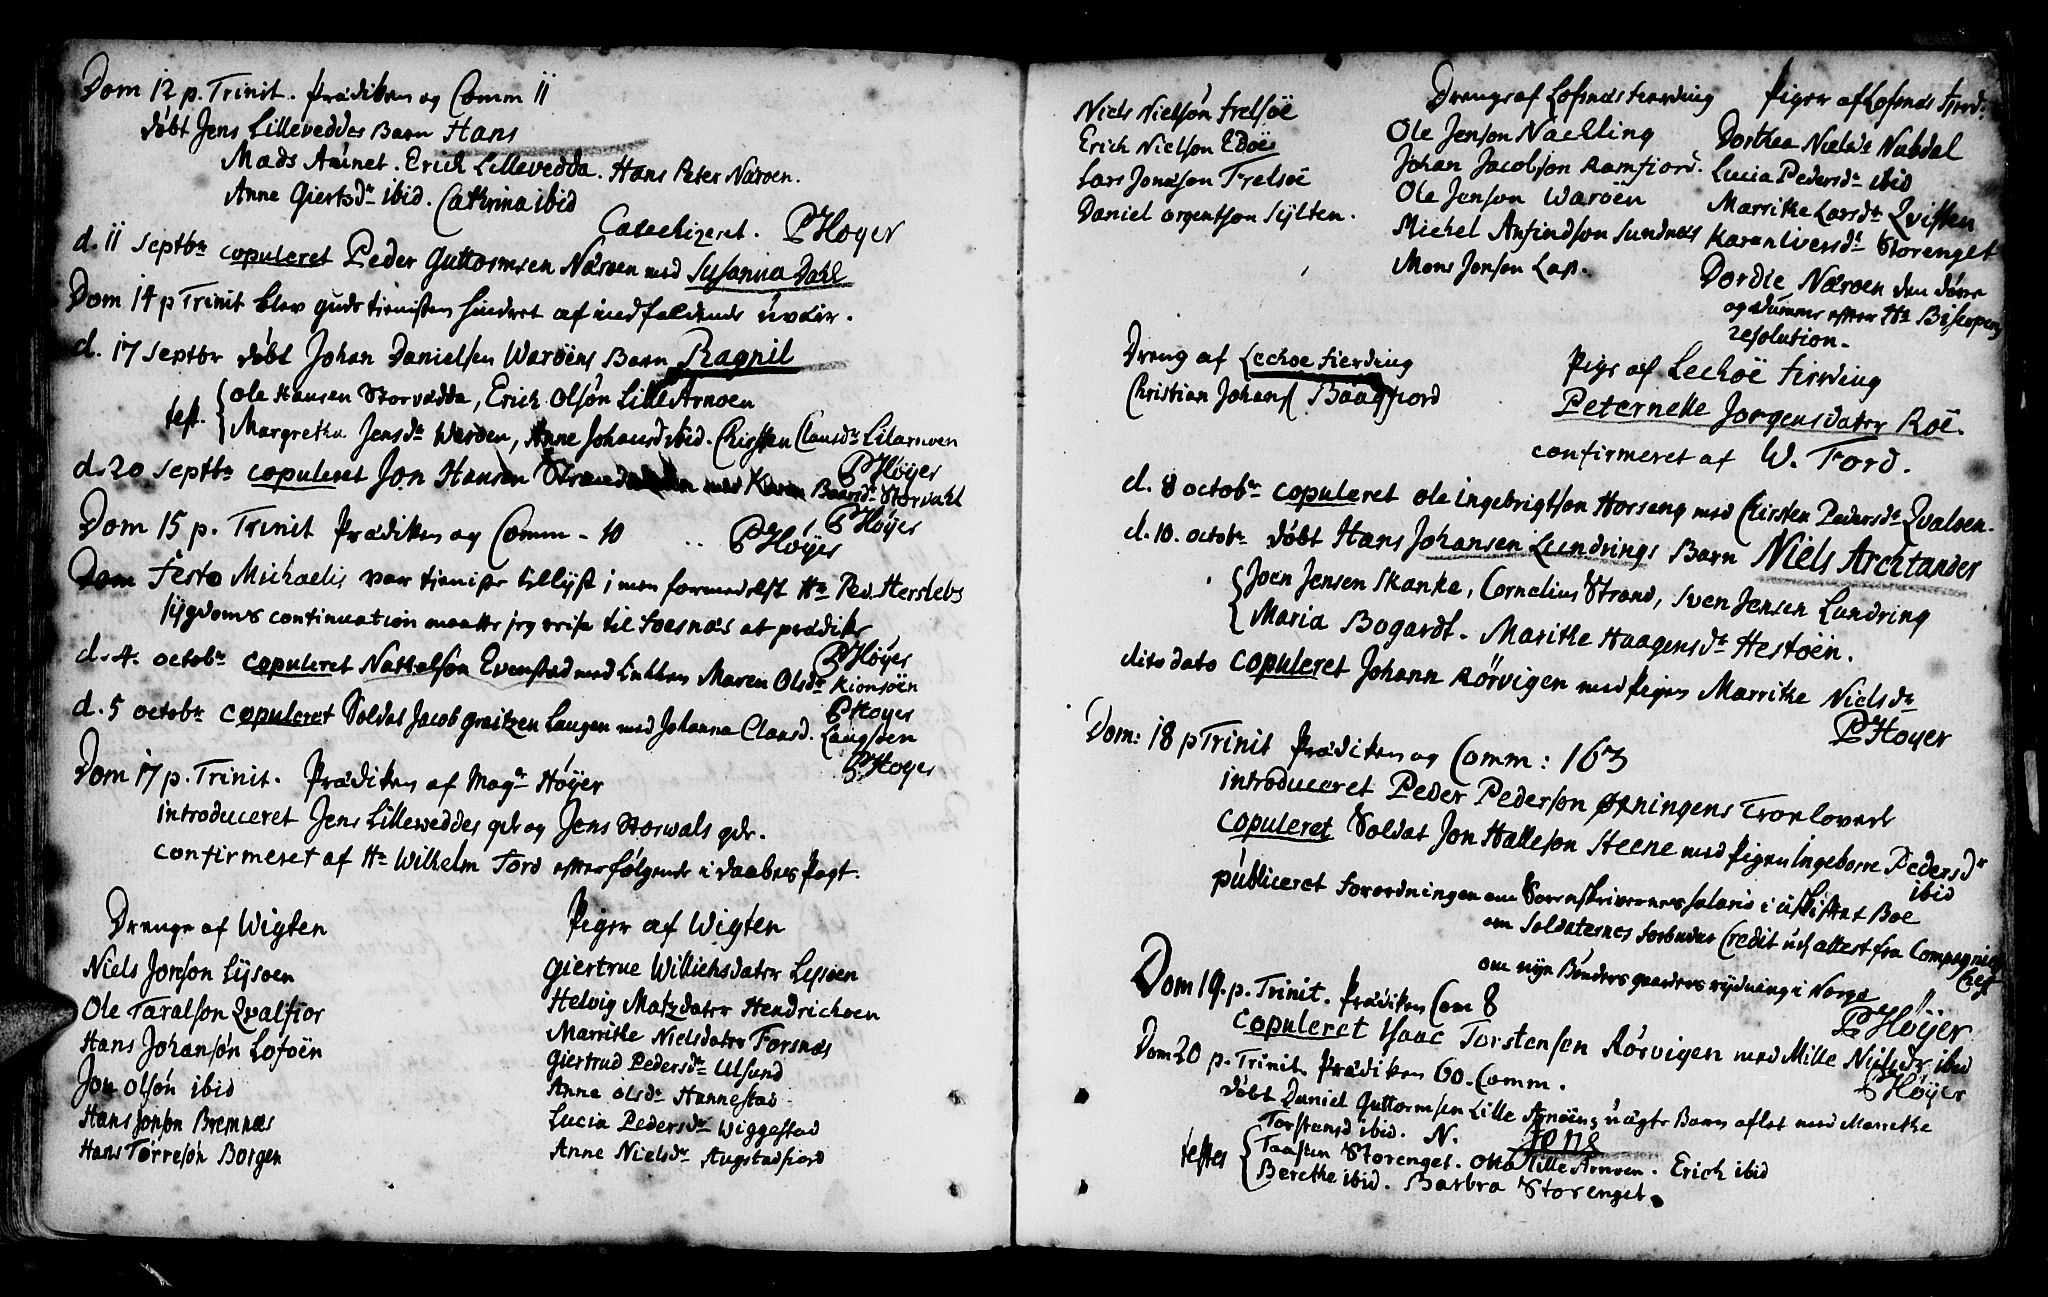 Dom 12 p. Trinit. Prædiken og Comm 11
døbt Jens Lilleveddes Barn Hans
Mads Aunet. Erich Lillevedda. Hans Peter Næroen.
Anne Giertsdr ibid. Cathrina ibid
Catechizeret. PHøyer
d. 11 Septbr copuleret Peder Guttormsen Næroen med Susanna Dahl
Dom 14 p Trinit blev gudstienisten hindret af indfaldende uveir.
d. 17 Septbr døbt Johan Danielsen Warøens Barn Ragnil
test. Ole Hansen Storvedda, Erich Olsøn Lille Arnoen
Margretha Jensdr Waroen, Anne Johansd ibid. Chisten Clausdr Lilarnoen
PHøyer
d. 20 Septbr copuleret Jon Hansen med Karen Baarsdr Storvahl
PHøyer
Dom 15 p. Trinit Prædiken og Comm - 10 PHøyer
Dom Festo Michaelis var tieniste tillyst i men formedelst Hr Ped. Herslebs
sygdoms continuation maatte jeg reise til Foesnæs at prædike
PHøyer
d. 4. octobr copuleret Nattalson Evenstad med Enkken Maren Olsdr Kionsøen
PHøyer
d. 5 octobr copuleret Soldat Jacob Graitzen Laugen med Johanna Clausd. Laugsøen
PHøyer
Dom 17 p. Trinit. Prædiken af Magr Høyer
introduceret Jens Lilleveddes qde og Jens Storwals qde.
confirmeret af Hr Wilhelm Ford efterfølgende i daabens Pagt.
Drenge af Wigten
Niels Jonson Lysoen
Ole Taralson Qvalfior
Hans Johansøn Lofoën
Jon Olsøn ibid
Hans Jonson Bremnæs
Hans Torresøn Borgen
Piger af Wigten
Giertrue Willichsdater Lyssoen
Helvig Matzdater Hendrichoen
Marritke Nielsdater Forsnæs
Giertrud Pedersdr Ulsund
Anne Olsdr Hannestad
Lucia Pedersdr Wiggestad
Anne Nielsdr Augstadfiord
Niels Nielsøn Frelsøe
Erich Nielson Edøe
Lars Jonason Frelsøe
Daniel orgentson Sylten.
Drenge af Lofsnæs Fierding
Ole Jenson Naelling
Johan Jacobson Ramfiord.
Ole Jenson Warøen
Michel Anfindson Sundnæs
Mons Jonson Lap.
Piger af Lofsnæs Fierd:
Dorthea Nielsdr Nubdal
Lucia Pedersdr ibid
Marritke Larsdr Qvisten
Karen Iversdr Storenget
Dordie Næroen den døve
og dumme efter Hr Biskopens
resolution.
Dreng af Lechoe Fierding
Christian Johans Baagfiord
Pige af Lechoe Fierding
Peternelle Jorgensdater Roë.
confirmeret af W. Ford.
d. 8 octobr copuleret Ole Ingebrigtson Horseng med Chirsten Pedersdr Qvaloen.
d. 10. octobr døbt Hans Johansen Lundrings Barn Niels Arctander
Joen Jensen Skanke, Cornelius Strand, Sven Jensen Lundring
Maria Bogardt. Maritke Haagensdr Hestøen.
dito dato copuleret Johann Rörvigen med Pigen Marritke Nielsdr
PHøyer
Dom: 18 p Trinit Prædiken og Comm: 163
introduceret Peder Pederson Øpningens Troelovede
copuleret Soldat Jon Halleson Steene med Pigen Ingeborre Pedersdr
ibid
publiceret Forordningen om Sorenskrivernes salario i uskiftet Boe
om Soldaternes forbudne Credit uden attest fra Compagnie
Chef
om nye Bønders gaarders rydning i Norge
PHøyer
Dom 19. p. Trinit. Prædiken Com 8
copuleret Isaac Torstensen Rørvigen med Mille Nielsdr ibid
PHøyer
Dom 20 p. Trinit. Prædiken 60. Comm.
døbt Daniel Guttormsen Lille Arnøens uægte Barn aflet med Marretke
Torstensd ibid. N. Jons
testes Taasten Storenget. Otto Lille Arnoen. Erich ibid
Beretke ibid. Barbra Storenget.